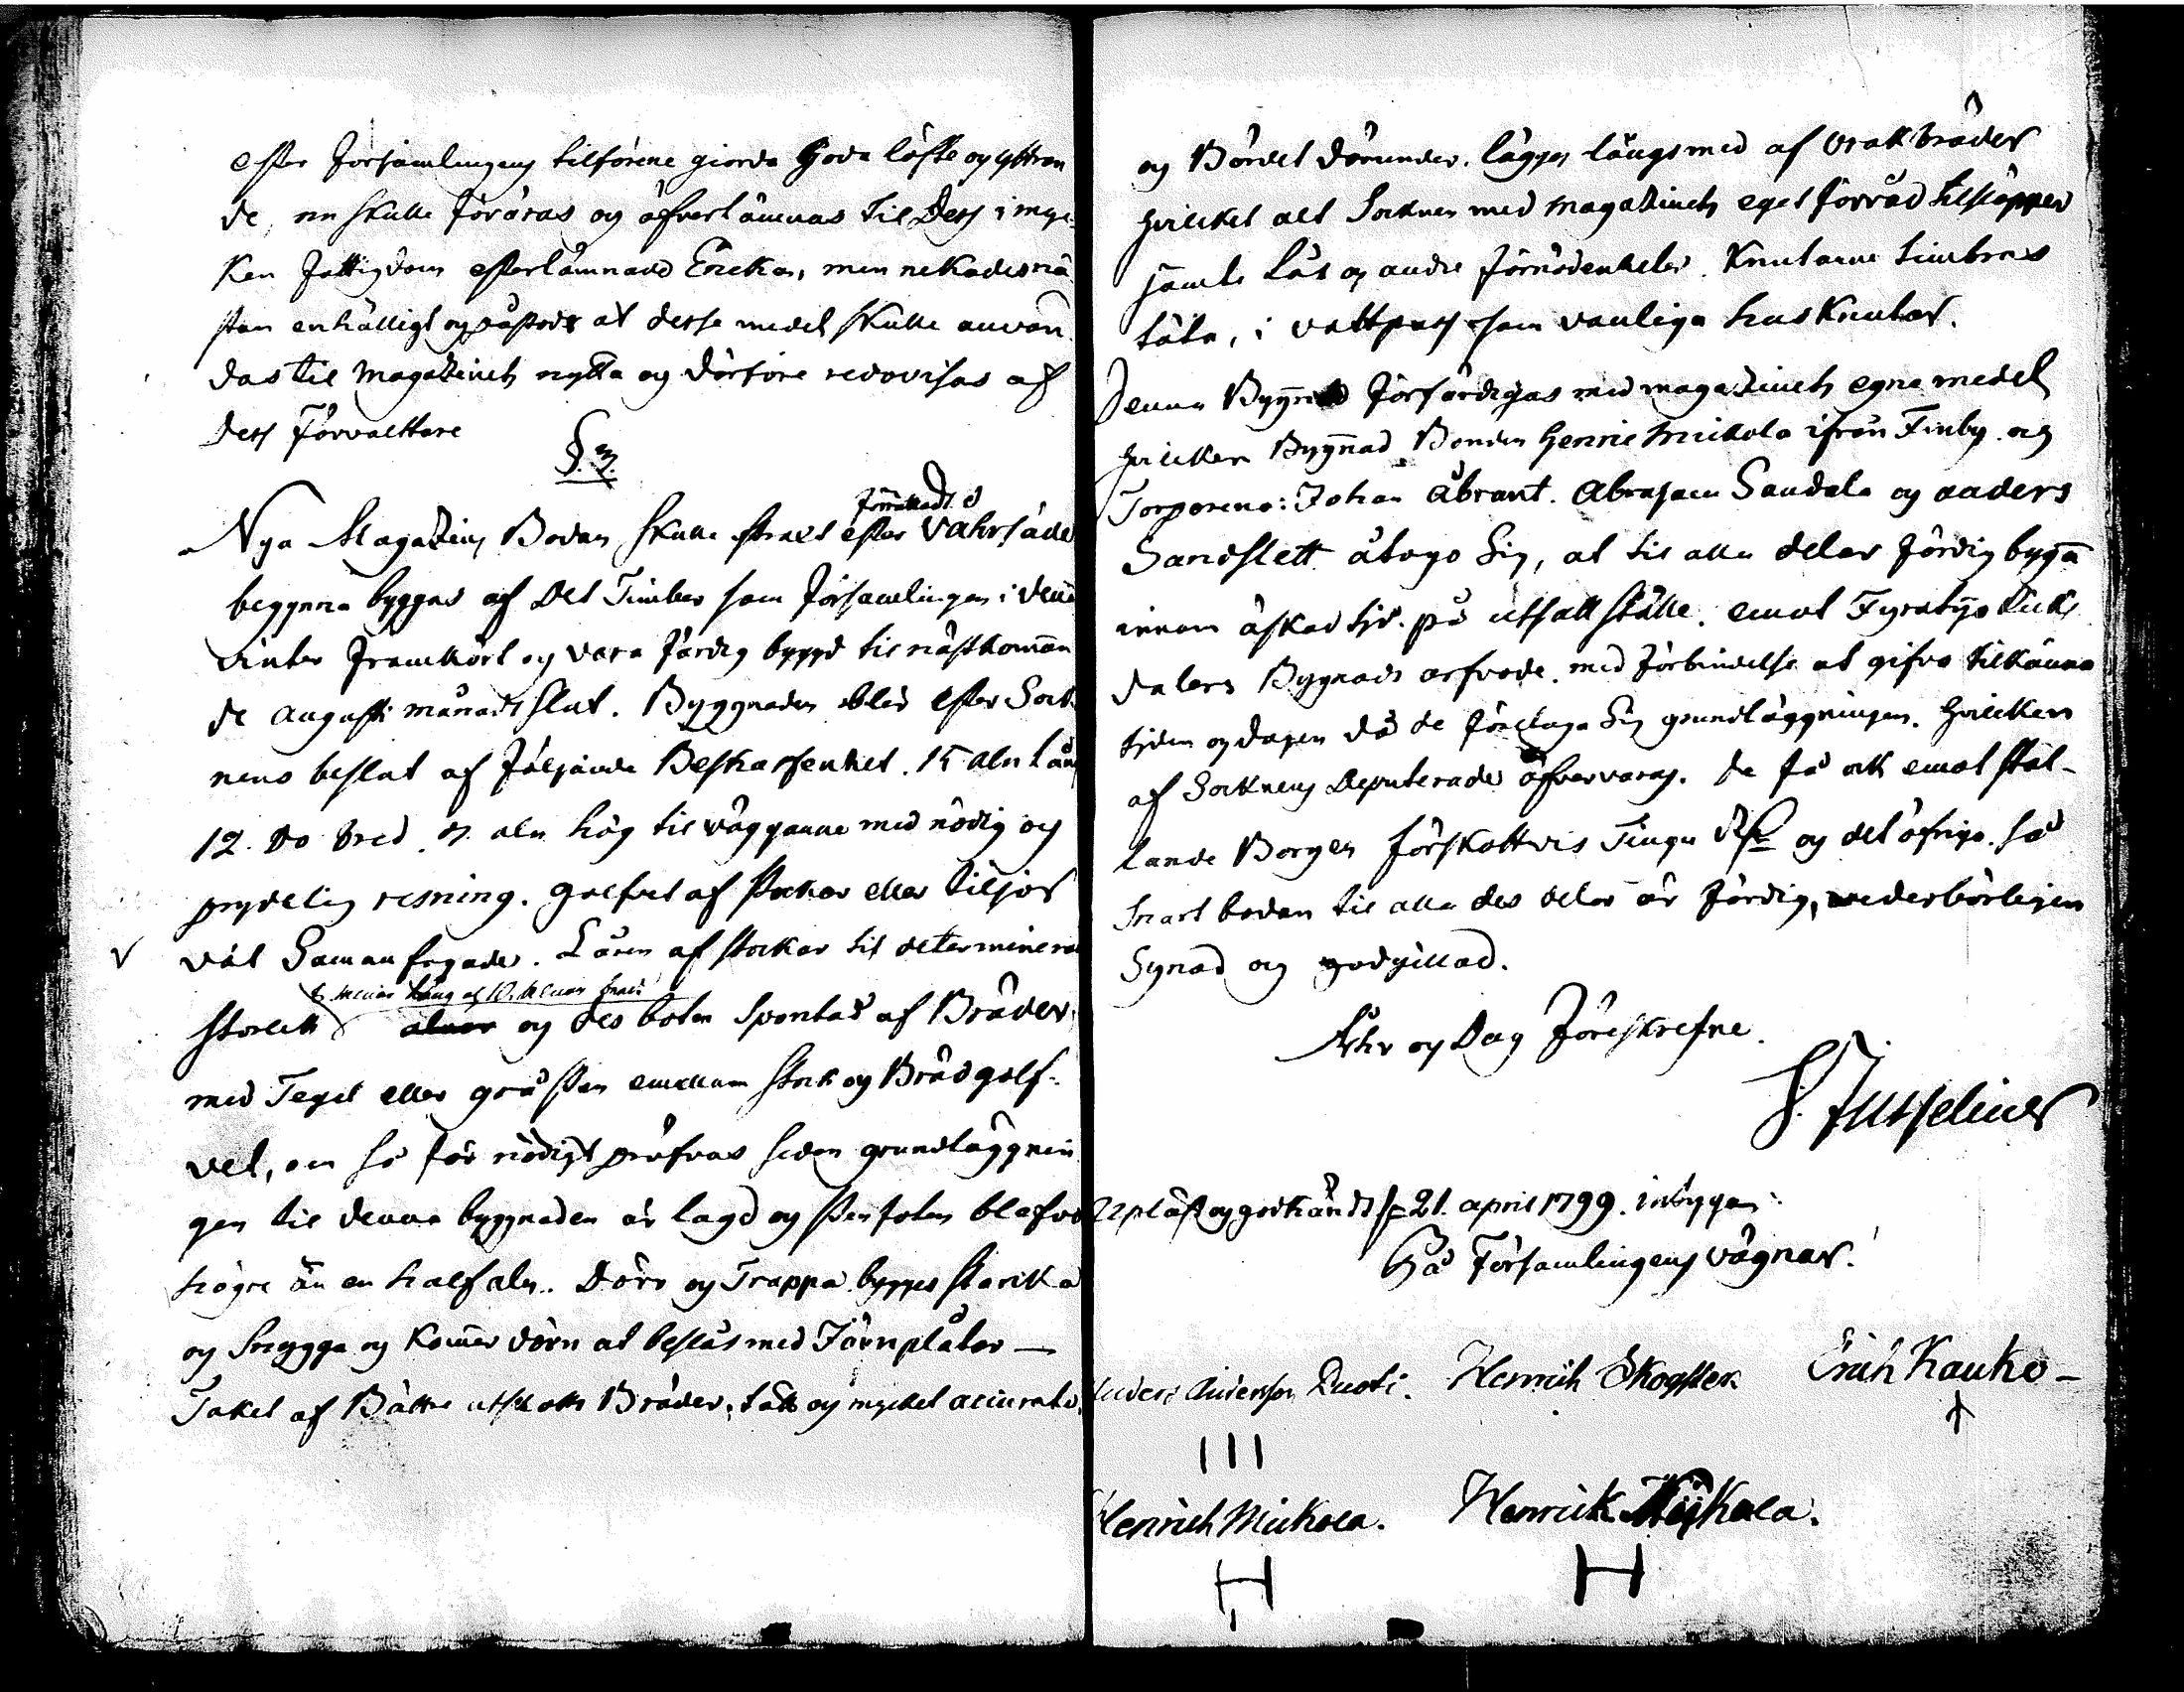 efter Församlingens tilförene giorda Goda löfte og yttran
de, nu skulle föräras og öfverlämnas til Dess i myc
ken fattigdom efterlämnade Enckor, men nekades nä
stan enhälligt og påstods at desse medel skulle använ
das til Magazinets nytta og därföre redovisas af
dess Förvaltare
§. 3.
Nya Magazins Bodan skulle strax efter förrättad vahrsåde
begynna byggas af Det Timber som församlingen i denna
vinter framkört og vara färdig byggd til nästkom̄an
de Augusti månads slut. Byggnaden blev efter Sock
nens beslut af följande Beskaffenhet. 15 aln lång
12. Do bred aln hög til väggarne med nödig og
prydelig resning. golfvet af stockar eller tiljor
väl Samanfogade. Lären af stockar til determinerad
storlek alnar lång og alnar bred og des boten spontad af Bräder
med Tegel eller gråsten emellan stock og Brädgolf-
vet, om så för nödigt pröfvas sedan grundläggnin
gen til denna byggnaden är lagd og stenfoten
högre än en half aln. Dörr og Trappa byggas starka
og Snygga og kom̄er dörn at beslås med Järnplåtar —
Taket af Bättre utskotts Bräder, tätt og mycket accurate
og Bördet därunder. lägges längsmed af vrakbräder
hvilcket alt Socknen med magazinets eget förråd tilsläpper
jämte Lås og andra förnödenheter. Knutarne timbras
täta, i vattpass som vanliga husknutar.
Denna Bygnad förfärdigas med magazinets egna medel
hvilcken Bygnad Bonden Henric Mickola ifrån Finby og
Torparena: Johan Åbrant. Abraham Sandala og anders
Sandslett åtogo sig, at til alla delar färdig byga
innom åskad tid. på utsatt ställe. emot Fyratijo Riks
dalers Bygnads arfvode. med förbindelse at gifva tilkänna
tiden og dagen då de företaga sig grundläggningen. hvilcken
af Socknens Deputerade öfvervaras. De få ock emot stäl-
lande Borgen förskottvis Tiugu Rd og det öfriga. så
snart bodan til alla des delar är färdig, vederbörligen
Synad og godgillad.
Åhr og Dag föreskrefne.
Upläst og godkändt d 21. april 1799. intygar
På Församlingens vägnar.
Anders Andersson Ruoti. Henrich Skogster Erich Kauko —
III
Henrich Mickola. Henrick
H H